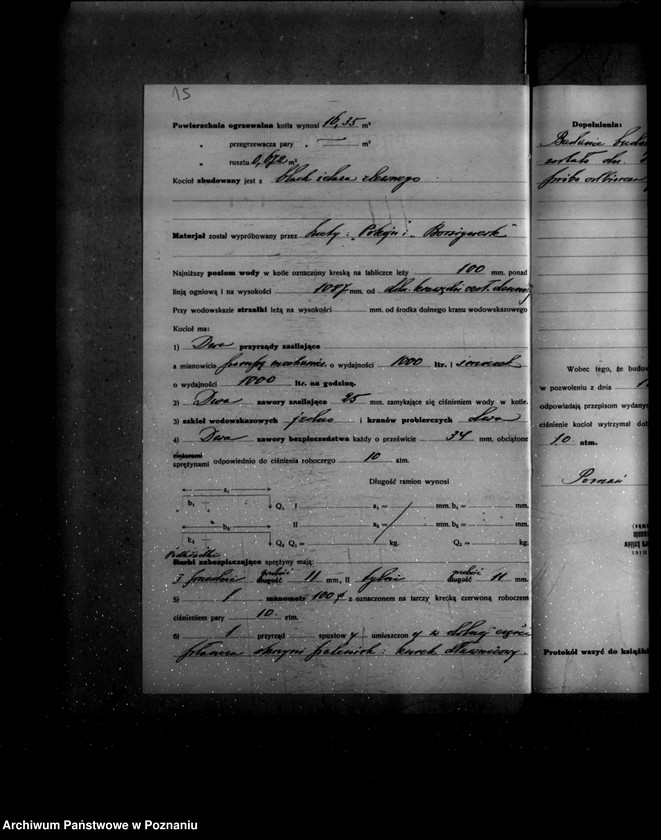 15
Powierzchnia ogrzewalna kotła wynosi 16,35 m²
„ przegrzewacza pary „ — m²
„ rusztu 0,672 m²
Kocioł zbudowany jest z blach żelaza zlewnego
Materjał został wypróbowany przez huty: "Pokój" i "Borsigwerk"
Najniższy poziom wody w kotle oznaczony kreską na tabliczce leży 100 mm. ponad
linją ogniową i na wysokości 1087 mm. od
Przy wodowskazie strzałki leżą na wysokości mm. od środka dolnego kranu wodowskazowego
Kocioł ma:
1) Dwa przyrządy zasilające
a mianowicie pompę mechanicz. o wydajności 1000 ltr. i
o wydajności 1000 ltr. na godzinę.
2) Dwa zawory zasilające 25 mm. zamykające się ciśnieniem wody w kotle.
3) szkieł wodowskazowych jedno i kranów probierczych dwa
4) Dwa zawory bezpieczeństwa każdy o prześwicie 34 mm. obciążone
ciężarami
sprężynami odpowiednio do ciśnienia roboczego 10 atm.
Długość ramion wynosi
a₁
b₁ Q₁ I a₁ = mm. b₁ = mm.
b₂ II a₂ = mm. b₂ = mm.
Q₂ Q₁ = kg. Q₂ = kg.
Podkładki
Rurki zabezpieczające sprężyny mają:
grubość grubość
I przedni długość 11 mm, II tylni długość 11 mm.
5) 1 manometr 100 z oznaczonem na tarczy kreską czerwoną roboczem
ciśnieniem pary 10 atm.
6) 1 przyrząd spustowy umieszczony w dolnej części
płaszcza skrzyni paleniska: kurek dławnicowy.
Dopełnienia:
Badanie
zostało dn.
próba
Wobec tego, że budow
w pozwoleniu z dnia
odpowiadają przepisom wydany
ciśnienie kocioł wytrzymał dob
10 atm.
Poznań
Protokół wszyć do książki
Archiwum Państwowe w Poznaniu